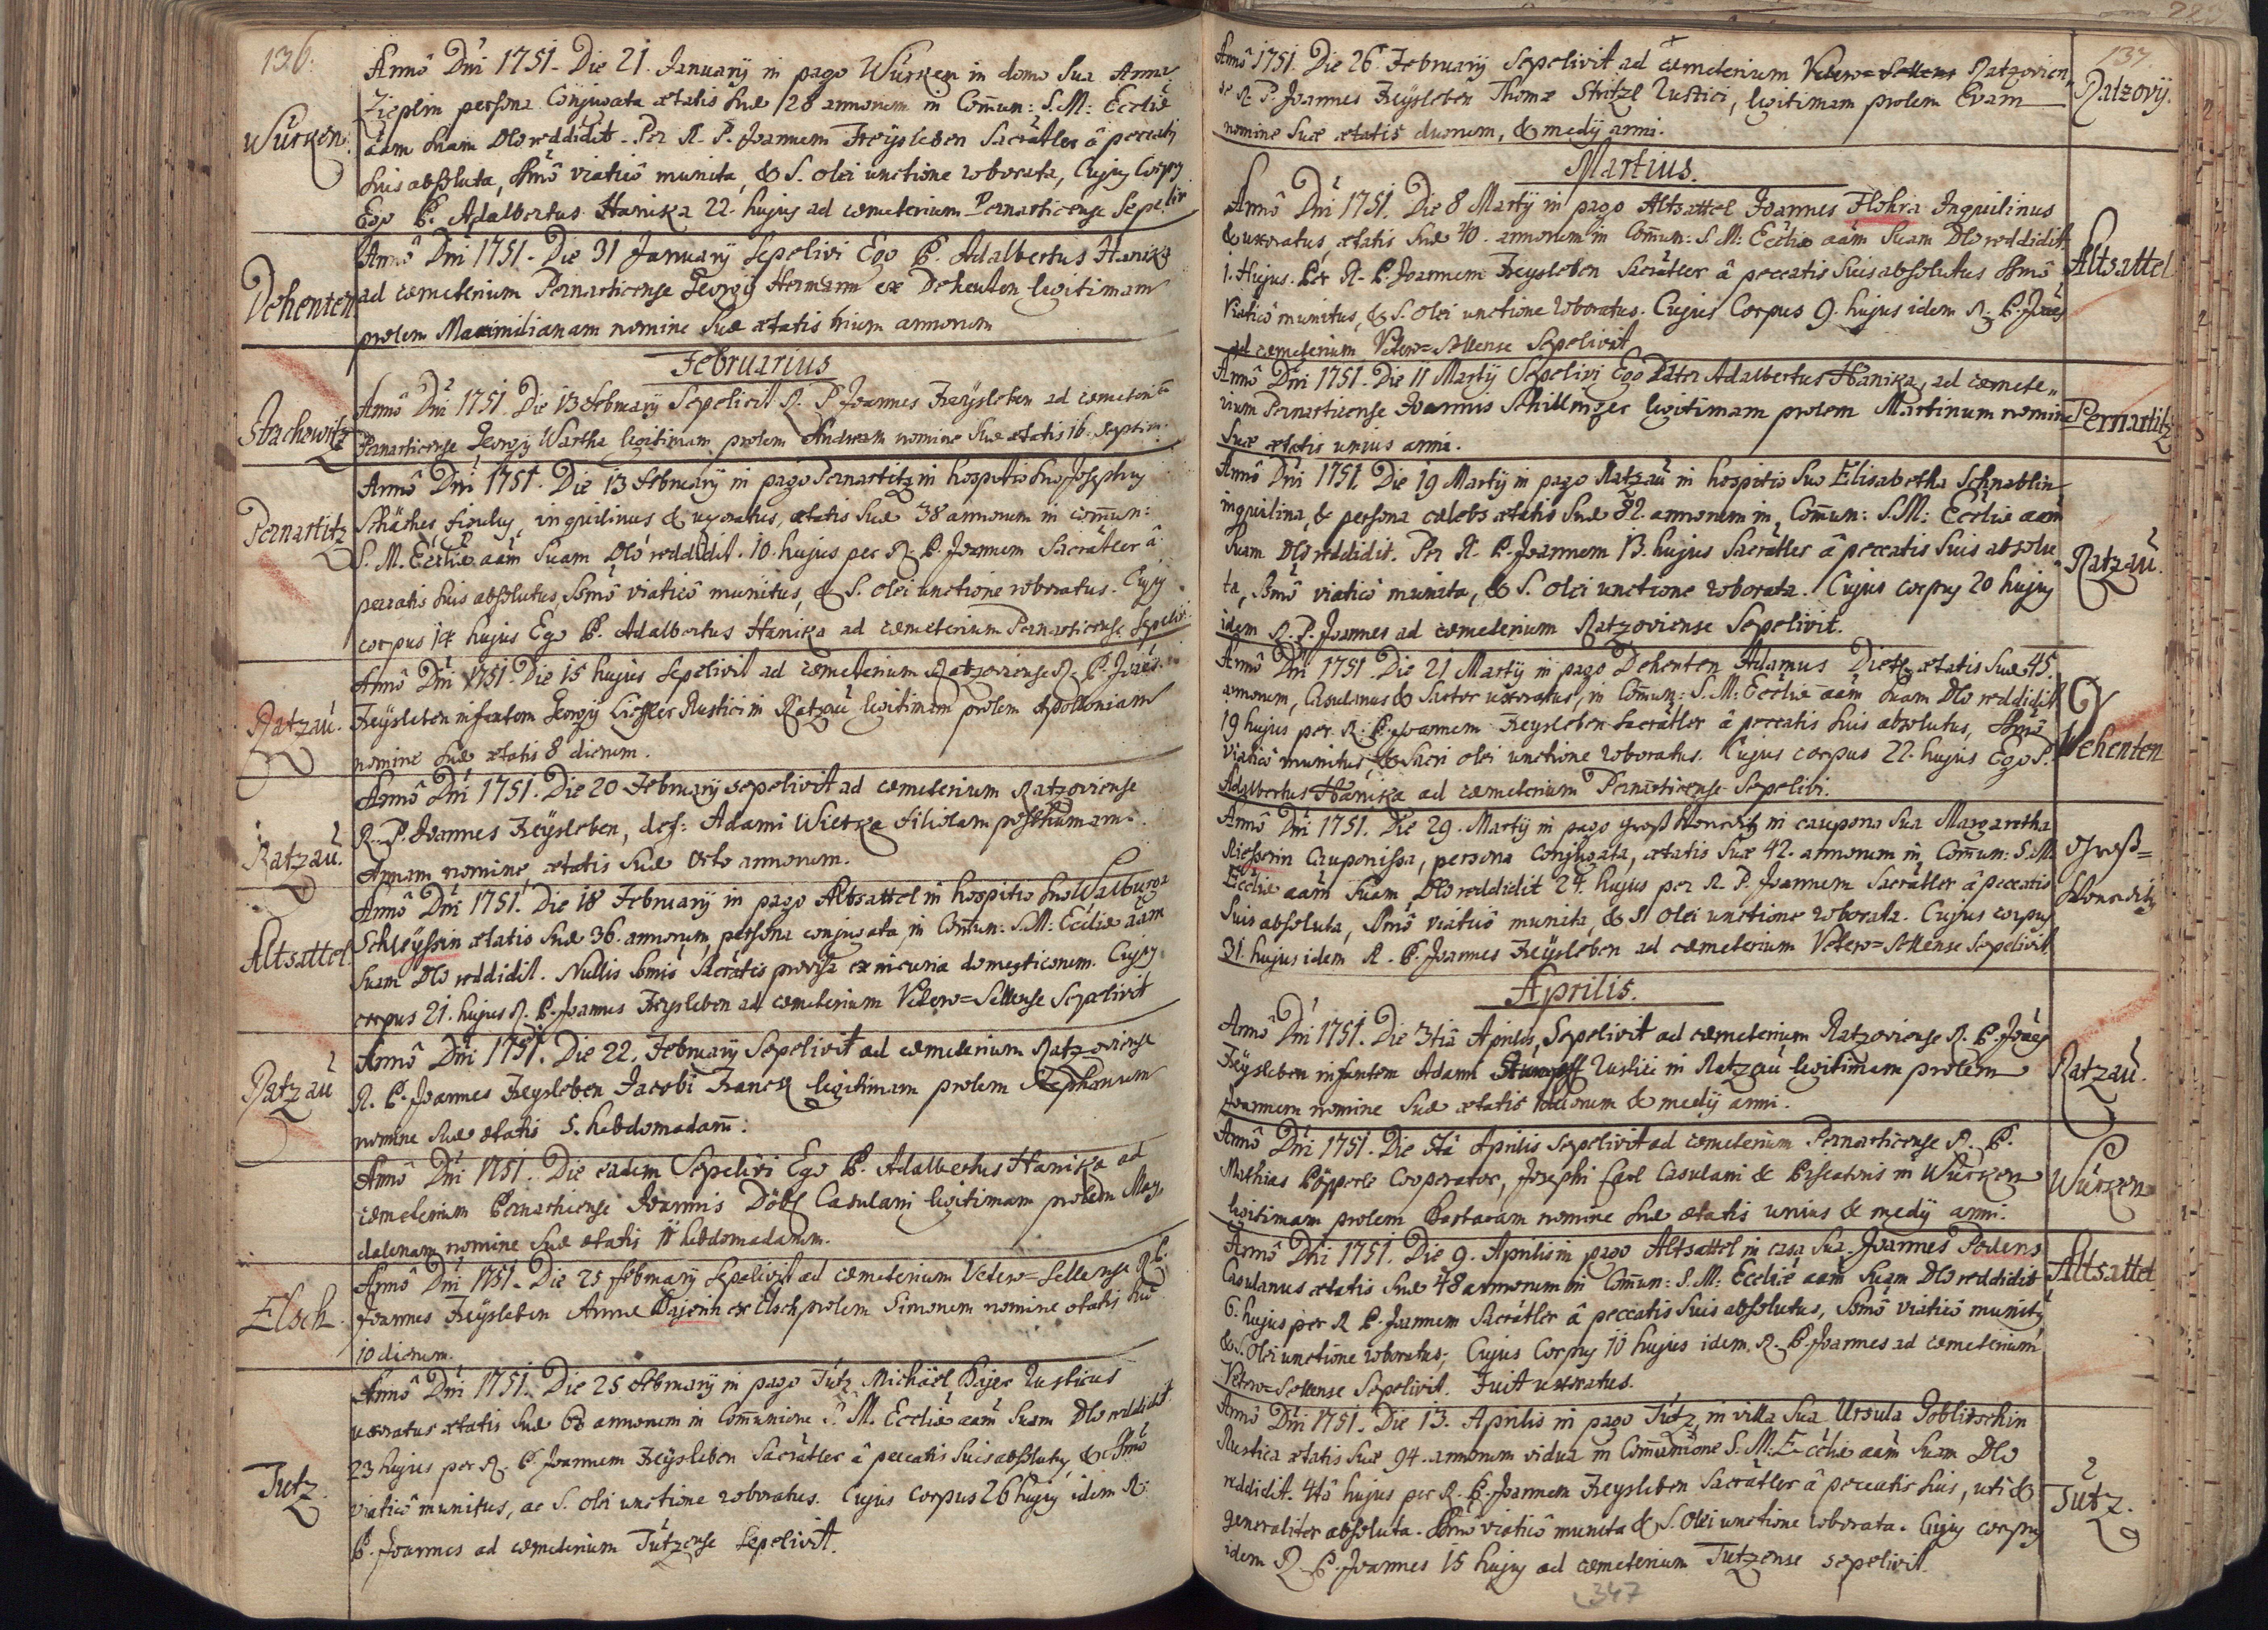 136.
Würken.
Annô Dni 1751. Die 21. Januarÿ in pago Würken in domo sua Anna
Zieplin persona Conjugata ætatis suæ 28 annorum in Com̄un: S. M: Ecclîæ
aam suam Dlo reddidit. Per R. P. Joannem Freÿsleben Sacratler â peccatis
suis absoluta, Smô viaticô munita, & S. olei unctione roborata, Cujus Corpus
Ego P. Adalbertus Hanika 22. hujus ad cœmeterium Pernarticense Sepelivi
Dehenten
Annô Dni 1751. Die 31 Januarÿ Sepelivi Ego P. Adalbertus Hanika
ad cœmeterium Pernarticense Georgÿ Hermann ex Dehenten legitimam
prolem Maximilianam nomine suæ ætatis trium annorum
Februarius
Strachowitz
Annô Dni 1751. Die 13 Februarÿ Sepelivit R. P. Joannes Freÿsleben ad cœmeteriũ
Pernarticense Georgÿ Wartha legitimam prolem Andream nomine suæ ætatis 16. septim:
Pernartitz
Annô Dni 1751. Die 13 Februarÿ in pago Pernartitz in hospitio suo Josephus
inquilinus & uxoratus, ætatis suæ 38 annorum in com̄un:
S. M. Ecclîæ aam suam Dlo reddidit. 10. hujus per R. P. Joannem Sacratler â
peccatis suis absolutus, Smô viaticô munitus, & S. olei unctione roboratus. Cujus
corpus 14 hujus Ego P. Adalbertus Hanika ad cœmeterium Pernarticense Sepelivi.
Ratzau.
Annô Dni 1751. Die 15 hujus Sepelivit ad cœmeterium Ratzoviense R. P. Joañes
Freÿsleben infantem Georgÿ Liessler Rustici in Ratzau legitimam prolem Apolloniam
nomine suæ ætatis 8 dierum.
Ratzau.
Annô Dni 1751. Die 20 Februarÿ sepelivit ad cœmeterium Ratzoviense
R. P. Joannes Freÿsleben, def: Adami Wietka filiolam posthumam.
Annam nomine, ætatis suæ octo annorum.
Altsattel.
Annô Dni 1751. Die 18 Februarÿ in pago Altsattel in hospitio suo Walburga
Schleÿssin ætatis suæ 36. annorum persona conjugata, in Com̄un: S. M: Ecclîæ aam
suam Dlo reddidit. Nullis Smis Sacratis provisa ex incuria domesticorum. Cujus
corpus 21. hujus R. P. Joannes Freÿsleben ad cœmeterium Vetero=Sellense Sepelivit
Ratzau
Annô Dni 1751. Die 22. Februarÿ Sepelivit ad cœmeterium Ratzoviense
R. P. Joannes Freÿsleben Jacobi Franck legitimam prolem Stephanum
nomine suæ ætatis 5. hebdomadam̄:
Annô Dni 1751. Die eadem Sepelivi Ego P. Adalbertus Hanika ad
cœmeterium Pernarticense Joannis Döbl Casulani legitimam prolem Mag=
dalenam nomine suæ ætatis 11 hebdomadarum.
Elsch.
Annô Dni 1751. Die 25 februarÿ Sepelivit ad cœmeterium Vetero=Sellense R. P.
Joannes Freÿsleben Annæ Bajerin ex Elsch prolem Simonem nomine ætatis suæ
10 dierum.
Tutz.
Annô Dni 1751. Die 25 Februarÿ in pago Tutz Michaël Bajer Rusticus
uxoratus ætatis suæ 60 annorum in Com̄unione S. M. Ecclîæ aam suam Dlo reddidit.
23 hujus per R. P. Joannem Freÿsleben Sacratler â peccatis suis absolutus, & Smô
viaticô munitus, ac S. olei unctione roboratus. Cujus corpus 26 hujus idem R.
P. Joannes ad cœmeterium Tutzense Sepelivit.
137.
Ratzovÿ.
Annô 1751. Die 26 Februarÿ Sepelivit ad cœmeterium Vetero=Sellens Ratzovien"
se R. P. Joannes Freÿsleben Thomæ Stritzl Rustici, legitimam prolem Evam
nomine suæ ætatis duorum, & medÿ anni.
Martius.
Altsattel
Annô Dni 1751. Die 8 Martÿ in pago Altsattel Joannes Flohra Inquilinus
& uxoratus, ætatis suæ 40. annorum in Com̄un: S. M: Ecclîæ aam suam Dlo reddidit
1. Hujus. Per R. P. Joannem Freysleben Sacratler â peccatis suis absolutus Smô
viaticô munitus, & S. olei unctione roboratus. Cujus Corpus 9. hujus idem R. P. Joañes
ad cœmeterium Vetero=Sellense Sepelivit
Pernartitz
Annô Dni 1751. Die 11 Martÿ Sepelivi Ego Pater Adalbertus Hanika, ad cœmete"
rium Pernarticense Joannis Schillinger legitimam prolem Martinum nomine
suæ ætatis unius anni.
Ratzau.
Annô Dni 1751. Die 19 Martÿ in pago Ratzau in hospitio suo Elisabetha Schnablin
inquilina, & persona cælebs ætatis suæ 82. annorum in, Com̄un: S. M: Ecclîæ aam
suam Dlo reddidit. Per R. P. Joannem 13. hujus Sacratler â peccatis suis absolu"
ta, Smô viaticô munita, & S. olei unctione roborata. Cujus corpus 20 hujus
idem R. P. Joannes ad cœmeterium Ratzoviense Sepelivit.
Dehenten
Annô Dni 1751 Die 21 Martÿ in pago Dehenten Adamus Dietz ætatis suæ 45.
annorum, Casulanus & Sartor uxoratus, in Com̄un: S. M: Ecclîæ aam suam Dlo reddidit
19 hujus per R. P. Joannem Freysleben Sacratler â peccatis suis absolutus, Smô
viaticô munitus, & Sacri olei unctione roboratus. Cujus corpus 22. hujus Ego P.
Adalbertus Hanika ad cœmeterium Pernarticense Sepelivi.
Groß=
Wonetitz
Annô Dni 1751. Die 29. Martÿ in pago Groß Wonetitz in caupona sua Margaretha
Riesserin Cauponissa, persona Conjugata, ætatis suæ 42. annorum in Com̄un: S. M.
Ecclîæ aam suam, Dlo reddidit 24. hujus per R. P. Joannem Sacratler â peccatis
suis absoluta, Smô viaticô munita, & S. olei unctione roborata. Cujus corpus
31. hujus idem R. P. Joannes Freÿsleben ad cœmeterium Vetero=Sellense Sepelivit.
Aprilis.
Ratzau.
Annô Dni 1751. Die 3tiâ Aprilis, Sepelivit ad cœmeterium Ratzoviense R. P. Joañes
Freÿsleben infantem Adami Stumpff Rustici in Ratzau legitimam prolem
Joannem nomine suæ ætatis duorum & medÿ anni.
Würken
Annô Dni 1751. Die 5tâ Aprilis Sepelivit ad cœmeterium Pernarticense R. P.
Mathias Pöpperl Cooperator, Josephi Earl Casulani & Piscatoris in Würken
legitimam prolem Barbaram nomine suæ ætatis unius & medÿ anni.
Altsattel
Annô Dni 1751. Die 9. Aprilis in pago Altsattel in casa sua. Joannes Podens
Casulanus ætatis suæ 48 annorum in Com̄un: S. M: Ecclîæ aam suam Dlo reddidit
6. hujus per R P. Joannem Sacratler â peccatis suis absolutus, Smô viaticô munitus
& S. olei unctione roboratus; Cujus Corpus 10 hujus idem R. P. Joannes ad cœmeterium
Vetero=Sellense Sepelivit. Fuit uxoratus.
Tutz.
Annô Dni 1751. Die 13. Aprilis in pago Tutz, in villa sua Ursula Goblitschin
Rustica ætatis suæ 94. annorum vidua in Com̄unione S. M: Ecclîæ aam suam Dlo
reddidit. 4tâ hujus per R. P. Joannem Freysleben Sacratler â peccatis suis, uti &
generaliter absoluta. Smô viaticô munita & S. olei unctione roborata. Cujus corpus
idem R. P. Joannes 15 hujus ad cœmeterium Tutzense sepelivit.
347